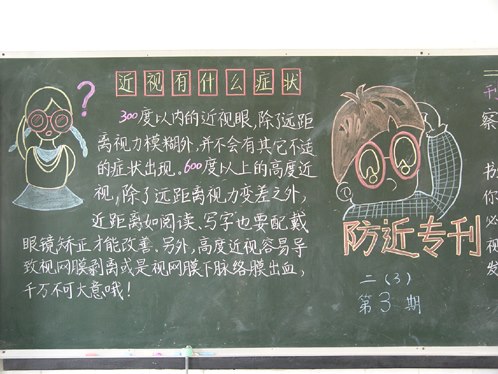 近视有什么症状
?
300度以内的近视眼,除了远距
离视力模糊外,并不会有其它不适
的症状出现。600度以上的高度近
视,除了远距离视力变差之外,
近距离如阅读、写字也要配戴
眼镜矫正才能改善。另外,高度近视容易导
致视网膜剥离或是视网膜下脉络膜出血,
千万不可大意哦!
防近专刊
二(3)
第3期
刊
察
书
你
必
视
发